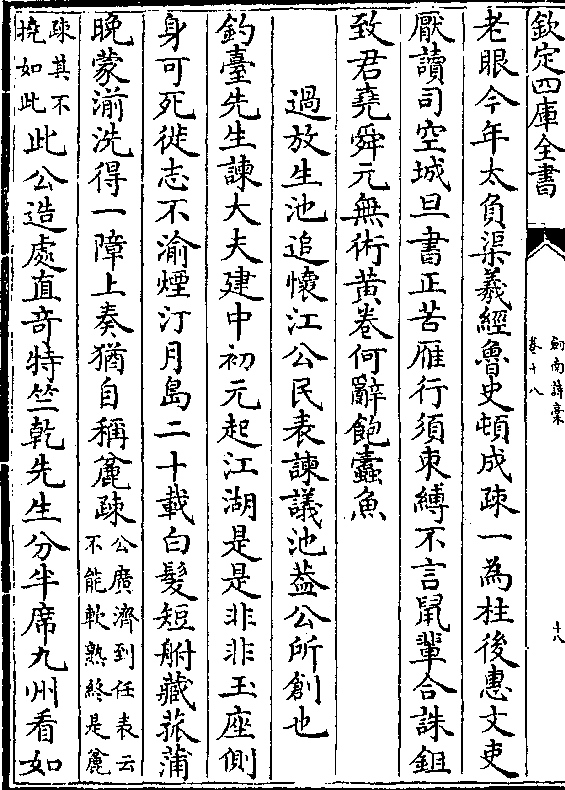 欽定四庫全書
劒南詩稾
卷十八
十八
老眼今年太負渠羲經魯史頓成疎一為柱後惠文吏
厭讀司空城旦書正苦雁行須束縛不言鼠輩合誅鉏
致君堯舜元無術黄卷何辭飽蠹魚
過放生池追懷江公民表諫議池葢公所創也
釣臺先生諫大夫建中初元起江湖是是非非玉座側
身可死徙志不渝煙汀月島二十載白髮短䑧藏菰蒲
晚蒙湔洗得一障上奏猶自稱麄疎公廣濟到任表云
不能軟熟終是麄
疎其不
曉如此此公造處直竒特竺乾先生分半席九州看如